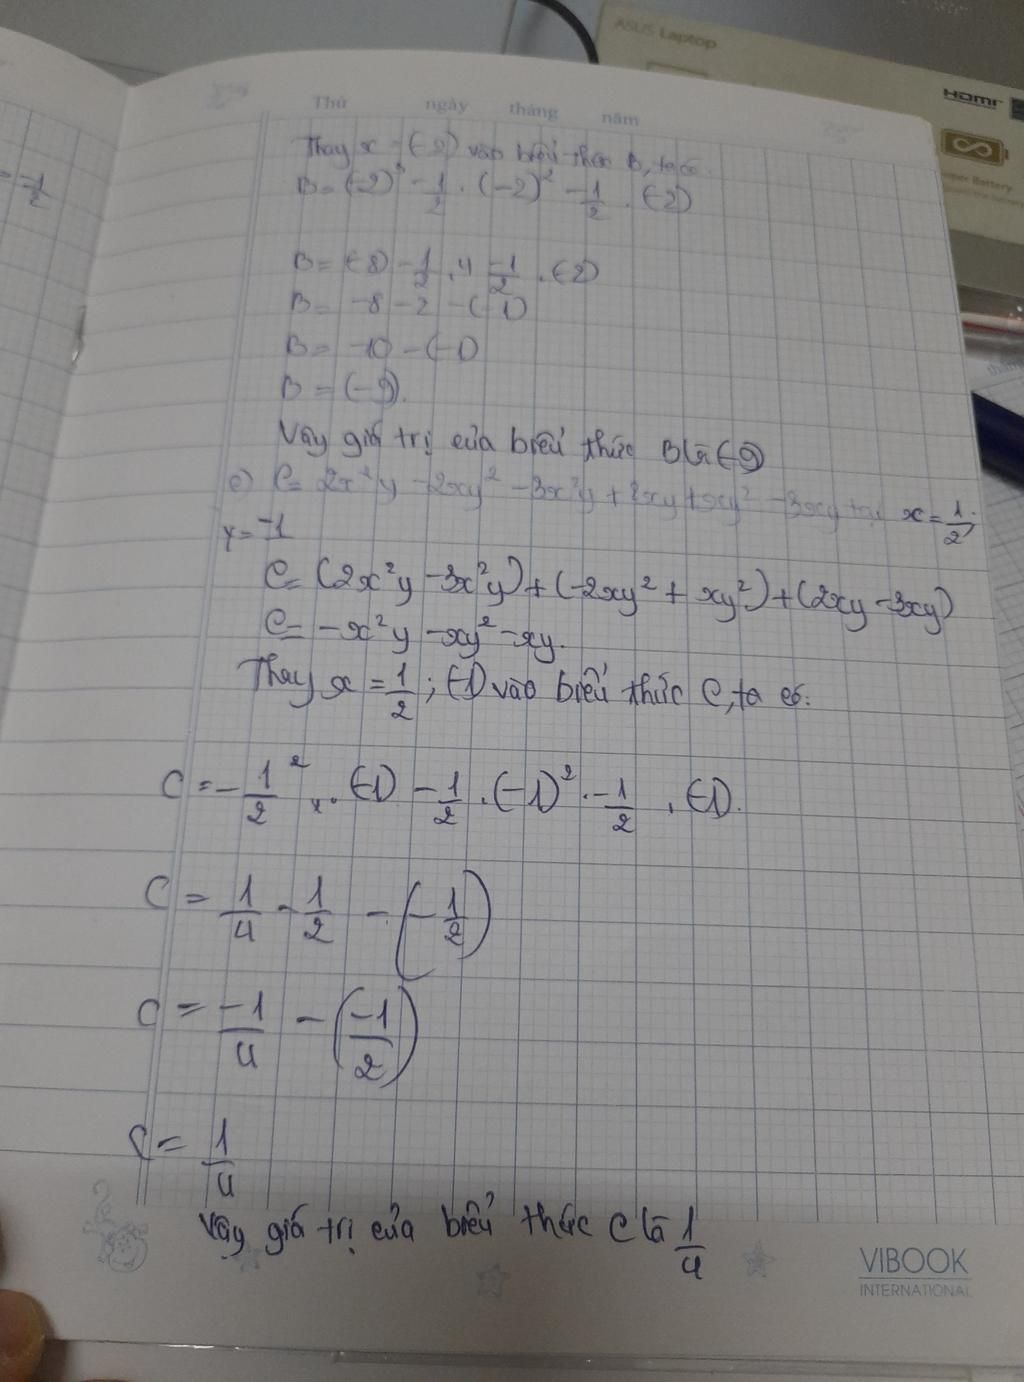 ASUS Laptop
HDMI
Thứ ngày tháng năm
Thay x = (-2) vào biểu thức B, ta có
B = (-2)³ - 1/2 . (-2)² - 1/2 . (-2)
B = (-8) - 1/2 . 4 - 1/2 . (-2)
B = -8 - 2 - (-1)
B = -10 - (-1)
B = (-9).
Vậy giá trị của biểu thức B là (-9)
c) C = 2x²y - 2xy² - 3x²y + 2xy + xy² - 3xy tại x = 1/2;
y = -1
C = (2x²y - 3x²y) + (-2xy² + xy²) + (2xy - 3xy)
C = -x²y - xy² - xy.
Thay x = 1/2 ; (-1) vào biểu thức C, ta có:
C = - 1/2 ² . (-1) - 1/2 . (-1)² . - 1/2 . (-1).
C = 1/4 - 1/2 - (- 1/2)
C = -1/4 - (-1/2)
C = 1/4
Vậy giá trị của biểu thức C là 1/4
VIBOOK
INTERNATIONAL